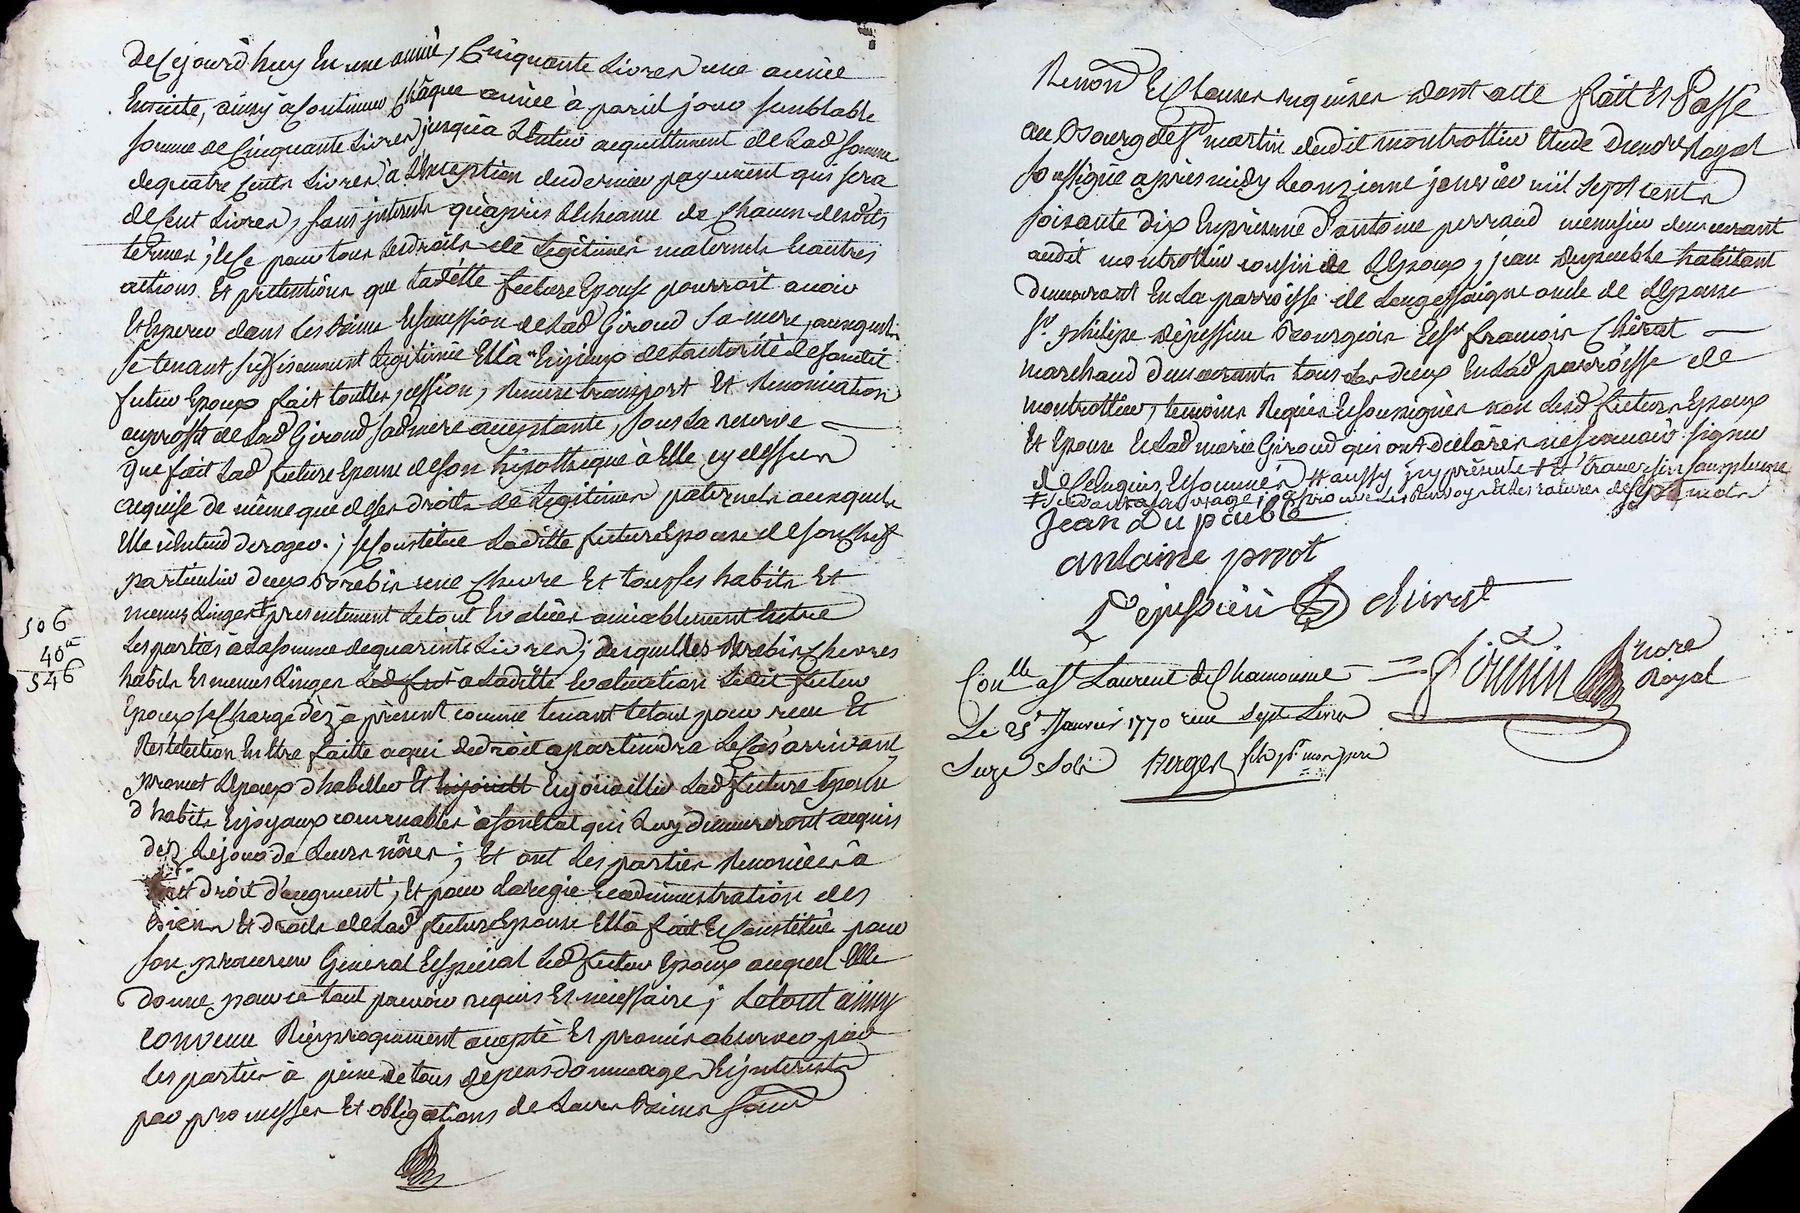 de Cejourd'huy En une année, Cinquante Livres une année
Ensuite, ainsy a Continuer Châque année à pareil jour semblable
somme de Cinquante Livres jusqu'a L'Entier acquittement de Lad somme
de quatre Cents Livres à L'Exception du dernier payement qui sera
de Cent Livres, sans interests qu'après L'Echeance de Chacun desdits
termes; Et Ce pour tous Ses droits de Legitimes maternels Et autres
actions Et pretentions que Ladítte future Epouse pourroit avoir
Et Esperer dans Les Biens Et Succession de Lad Giroud Sa mere, au moyen
Se tenant suffisamment Legitimée Ella Enjeux de L'autorité de Sondit
futur Epoux fait touttes cession, remise transport Et Renonciation
au proffit de Lad Giroud Sad mere acceptante, sous La reserve
que fait Lad future Epouse de son hipotheque à Elle cy dessus
acquise de même que de ses droits de Legitimes paternels auxquels
Elle n'Entend deroger; Se Constitue Laditte future Epouse de Son Chef
particulier deux Brebis une Chevre Et tous ses habits Et
menus Linges ‡ presentement Letout Evalués amiablement Entre
Les parties à La somme de quarante Livres; desquelles Brebis Chevres
habits Et menus Linges Led fut a Laditte Evaluation Ledit futur
Epoux se Charge dèz a présent comme tenant Letout pour reçu Et
Restitution En être faitte a qui de droit apartiendra Le Cas arrivant
promet L'Epoux d'habiller Et Enjouailler Lad future Epouse
d'habits Et joyaux convenables à son Etat qui Luy demeureront acquis
dèz Le jour de Leurs nôces; Et ont Les parties Renoncées à
tout droit d'augment, Et pour La regie Et administration des
Biens Et droits de Lad future Epouse Ella fait Et Constitué pour
son procureur General Et Special Led futur Epoux auquel Elle
donne pour ce tout pouvoir requis Et necessaire; Letout ainsy
convenu Réciproquement accepté Et promis observer par
Les parties à peine de tous dépens dommages Et interests
par promesses Et obligations de Leurs Biens Soum
506
40
546
Renon Et Clauses requises dont acte fait Et Passé
au Bourg de St martin dudit montrottier Etude du nore Royal
soussigné après midy Le onzieme janvier mil Sept cents
soixante dix En présence d'antoine perraud menusier demeurant
audit montrottier cousin de L'Epoux, jean Dupeuble habitant
Demeurant En La parroisse de Longessaigne oncle de L'Epouse
Sr philipe Dejussieu Bourgeois Et Sr françois Chirat
marchand demeurants tous Les deux En Lad parroisse de
montrottier, temoins Requis Et soussignés non Lesd futurs Epoux
Et Epouse Et Lad marie Giroud qui ont declarés ne sçavoir signer
de Ce Enquis Et sommés
Jean Dupeuble
antoine prrot
Dejussieu Chirat
Conlle a St Laurent de Chamousset
Le 25 Janvier 1770 reçu Sept Livres
Seize Sols Berger
nore
Royal